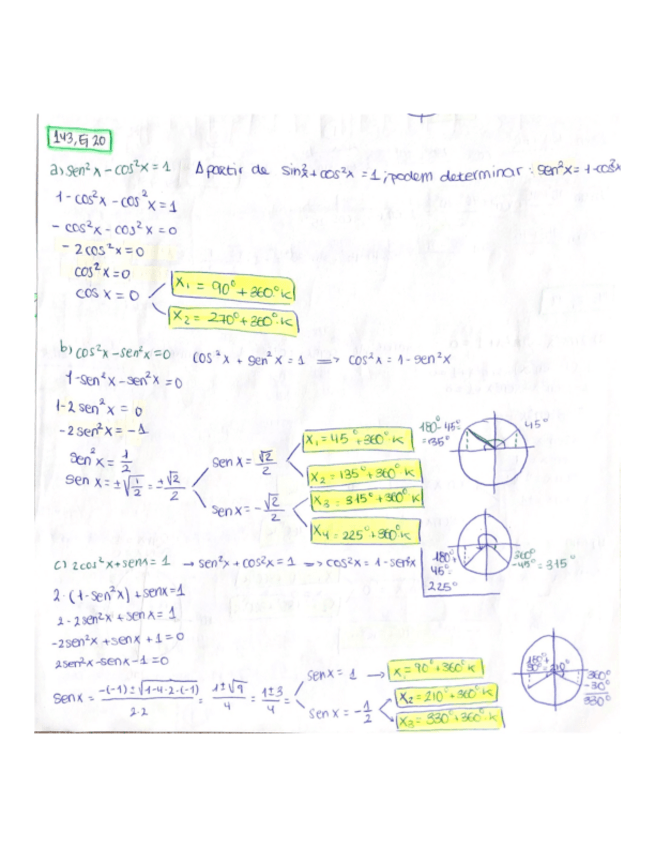 143, Ej 20
a) sen²x - cos²x = 1 A partir de sin²x + cos²x = 1, podem determinar: sen²x = 1 - cos²x
1 - cos²x - cos²x = 1
- cos²x - cos²x = 0
- 2cos²x = 0
cos²x = 0
cos x = 0
x₁ = 90° + 360°·k
x₂ = 270° + 360°·k
b) cos²x - sen²x = 0 cos²x + sen²x = 1 => cos²x = 1 - sen²x
1 - sen²x - sen²x = 0
1 - 2 sen²x = 0
- 2 sen²x = -1
sen²x = 1/2
sen x = ±√(1/2) = ±√2/2
sen x = √2/2
x₁ = 45° + 360°·k
x₂ = 135° + 360°·k
sen x = -√2/2
x₃ = 315° + 360°·k
x₄ = 225° + 360°·k
180° - 45° = 135°
45°
180° + 45° = 225°
360° - 45° = 315°
c) 2cos²x + sen x = 1 → sen²x + cos²x = 1 => cos²x = 1 - sen²x
2·(1 - sen²x) + sen x = 1
2 - 2sen²x + sen x = 1
-2sen²x + sen x + 1 = 0
2sen²x - sen x - 1 = 0
sen x = -(-1) ± √(1 - 4·2·(-1)) / 2·2 = 1 ± √9 / 4 = 1 ± 3 / 4 =
sen x = 1 → x₁ = 90° + 360°·k
sen x = -1/2
x₂ = 210° + 360°·k
x₃ = 330° + 360°·k
180° + 30° = 210°
360°
- 30°
330°